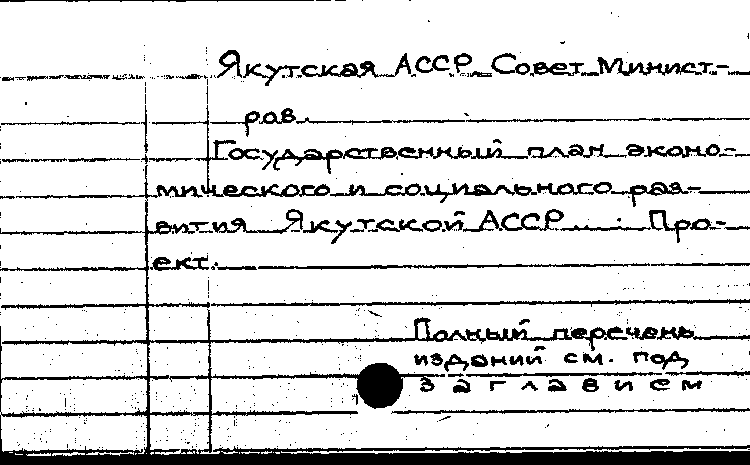 Якутская АССР. Совет Минист-
ров.
Государственный план эконо-
мического и социального раз-
вития Якутской АССР... : Про-
ект.
Полный перечень
изданий см. под
заглавием